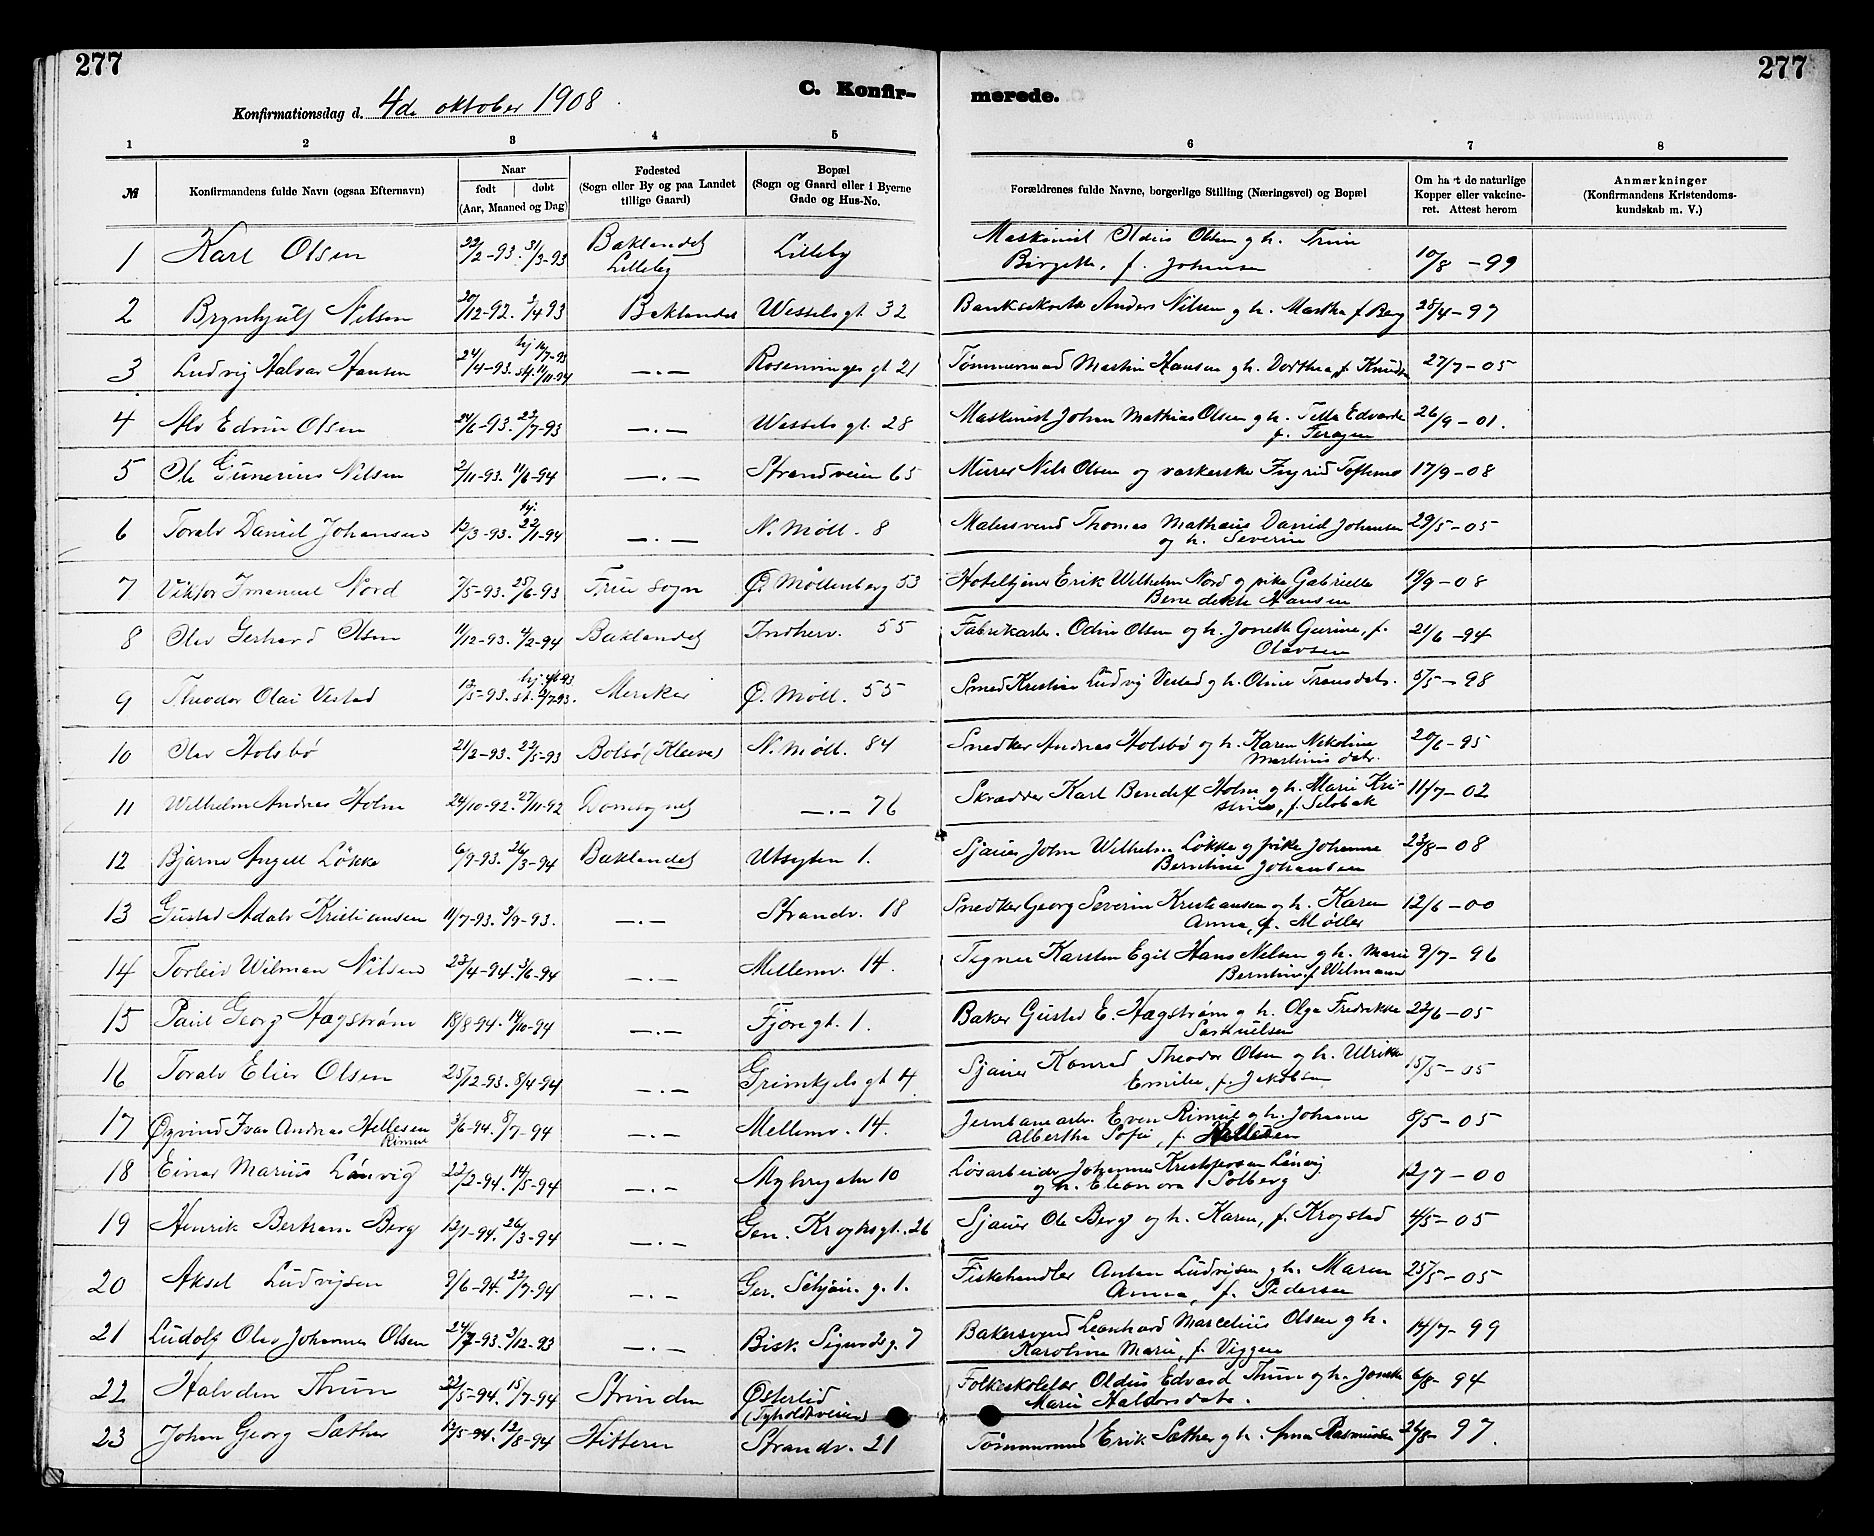 277
277
C. Konfir-
merede.
Konfirmationsdag d. 4de oktober 1908.
1 2 3 4 5 6 7 8
№
Konfirmandens fulde Navn (ogsaa Efternavn)
Naar
født | døbt
(Aar, Maaned og Dag)
Fødested
(Sogn eller By og paa Landet
tillige Gaard)
Bopæl
(Sogn og Gaard eller i Byerne
Gade og Hus-No.
Forældrenes fulde Navne, borgerlige Stilling (Næringsvei) og Bopæl
Om havt de naturlige
Kopper eller vakcine-
ret. Attest herom
Anmærkninger
(Konfirmandens Kristendoms-
kundskab m. V.)
1 Karl Olsen 22/2-93. 31/3-93 Baklandet Lilleby Lilleby Maskinist Oldius Olsen g h. Trine
Birgitte, f. Johansen 10/8-99
2 Brynhjulf Nilsen 20/12-92. 2/4 93 Baklandet Wessels gt 32 Banksekretær Anders Nilsen g h. Martha f Berg 28/4-97
3 Ludvig Halvar Hansen 24/4-93. hj 16/7-93 st. 11/11-94 -.- Rosenvinges gt 21 Tømmermand Martin Hansen g h. Dorthea, f. Knudsen 27/7-05
4 Alv Edvin Olsen 24/6-93. 23/7-93 -.- Wessels gt. 28 Maskinist Johan Mathias Olsen g h. Tella Edvarda
f. Terajen 26/9-01.
5 Ole Gunerius Nilsen 2/11-93. 11/6-94 -.- Strandveien 65 Murer Nils Olsen og vaskerske Ingrid Toftemo 17/9-08
6 Toralv Daniel Johansen 12/3-93. hj. 22/1-94 -.- N. Møll. 8 Malersvend Thomas Mathæus David Johansen
og h. Severine 29/5-05
7 Viktor Imanuel Nord 7/5-93. 25/6-93 Frue sogn Ø. Møllenberg 53 Hoteltjener Erik Wilhelm Nord og pike Gabrielle
Benedikte Hansen 19/9-08
8 Olav Gerhard Olsen 11/12-93. 4/2-94 Baklandet Indherv. 55 Fabrikarb. Odin Olsen og h. Jonette Gurine, f.
Olavsen 21/6-94
9 Theodor Olai Vestad 12/5-93. hj. 4/6 93 st. 2/7-93. Meraker Ø. Møll. 55 Smed Kristian Ludvig Vestad g h. Oline Transdatr. 5/5-98
10 Olav Holsbø 21/2-93. 22/5-93 Bolsø (Kleive) N. Møll. 84 Snedker Andreas Holsbø og h. Karen Nikoline
Martinusdatr. 20/6-95
11 Wilhelm Andreas Holm 24/10-92. 27/11-92 Domsognet -.- 76 Skrædder Karl Bendix Holm g h. Marie Kri-
stine, f. Selsbak 11/7-02
12 Bjarne Angell Løkke 6/9-93. 26/3-94 Baklandet Utsigten 1. Sjauer John Wilhelm Løkke g pike Johanna
Berntine Johansen 23/8-08
13 Gustav Adolv Kristiansen 11/7-93. 3/9-93. -.- Strandv. 18 Snedker Georg Severin Kristiansen og h. Karen
Anna, f. Møller 12/6-00
14 Torleiv Wilman Nilsen 23/4-94. 3/6-94 -.- Mellemv. 14. Tegner Karsten Egil Hans Nilsen g h. Marie
Berntine f Wilmann 9/7-96
15 Paul Georg Hægstrøm 18/8-94. 14/10-94 -.- Fjæregt. 1. Baker Gustav E. Hægstrøm g h. Olga Fredrikke
22/6-05
16 Toralv Elier Olsen 25/12-93. 8/4-94 -.- Grimkjels gt 4. Sjauer Konrad Theodor Olsen og h. Ulrikke
Emilie, f. Jakobsen 15/5-05
17 Øyvind Ivar Andreas Hellesen Rimul 3/6-94. 8/7-94 -.- Mellemv. 14. Jernbanearb. Even Rimul g h. Johanna
Albertha Sofie, f. Hellesen 8/5-05
18 Einar Marius Lånvig 22/2-94. 14/5-94 -.- Myhrgaten 10 Løsarbeider Johannes Kristofersen Lånvig
og h. Eleonora Solberg 12/7-00
19 Henrik Bertram Berg 12/1-94. 26/3-94 -.- Gen. Kroghs gt. 26 Sjauer Ole Berg og h. Karen, f. Krogstad 4/5-05
20 Aksel Ludvigsen 9/6-94. 22/7-94 -.- Ger. Schjøn. g. 1. Fiskehandler Anton Ludvigsen g h. Maren
Anna, f. Pedersen 25/5-05
21 Ludolf Olav Johannes Olsen 24/7-93. 3/12-93 -.- Bisk. Sigurds g. 7 Bakersvend Leonhard Marcelius Olsen g h.
Karoline Marie, f. Viggen 14/7-99
22 Halvdan Thun 22/5-94. 15/7-94 Strinden Østerlid
(Tyholtveien) Folkeskolelær. Oldus Edvard Thun og h. Jonetta
Marie Haldorsdatr. 6/8-94
23 Johan Georg Sæther 12/5-94. 12/8-94 Hitteren Strandv. 21 Tømmermand Erik Sæther g h. Anna Rasmussen 26/8-97.